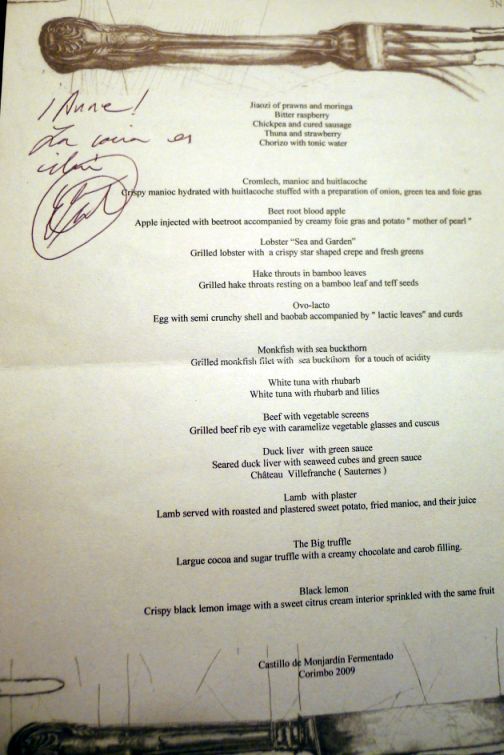 3N
¡Anne!
La cocina es
Jiaozi of prawns and moringa
Bitter raspberry
Chickpea and cured sausage
Thuna and strawberry
Chorizo with tonic water
Cromlech, manioc and huitlacoche
Crispy manioc hydrated with huitlacoche stuffed with a preparation of onion, green tea and foie gras
Beet root blood apple
Apple injected with beetroot accompanied by creamy foie gras and potato " mother of pearl "
Lobster "Sea and Garden"
Grilled lobster with a crispy star shaped crepe and fresh greens
Hake throuts in bamboo leaves
Grilled hake throats resting on a bamboo leaf and teff seeds
Ovo-lacto
Egg with semi crunchy shell and baobab accompanied by " lactic leaves" and curds
Monkfish with sea buckthorn
Grilled monkfish filet with sea buckthorn for a touch of acidity
White tuna with rhubarb
White tuna with rhubarb and lilies
Beef with vegetable screens
Grilled beef rib eye with caramelize vegetable glasses and cuscus
Duck liver with green sauce
Seared duck liver with seaweed cubes and green sauce
Château Villefranche ( Sauternes )
Lamb with plaster
Lamb served with roasted and plastered sweet potato, fried manioc, and their juice
The Big truffle
Largue cocoa and sugar truffle with a creamy chocolate and carob filling.
Black lemon
Crispy black lemon image with a sweet citrus cream interior sprinkled with the same fruit
Castillo de Monjardín Fermentado
Corimbo 2009